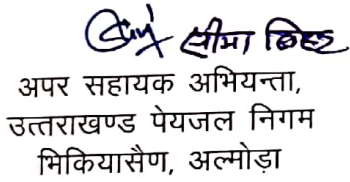 सीमा बिष्ट
अपर सहायक अभियन्ता,
उत्तराखण्ड पेयजल निगम
भिकियासैण, अल्मोड़ा